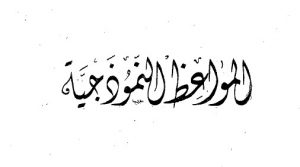 المواعظ النَّموذَجيَّة